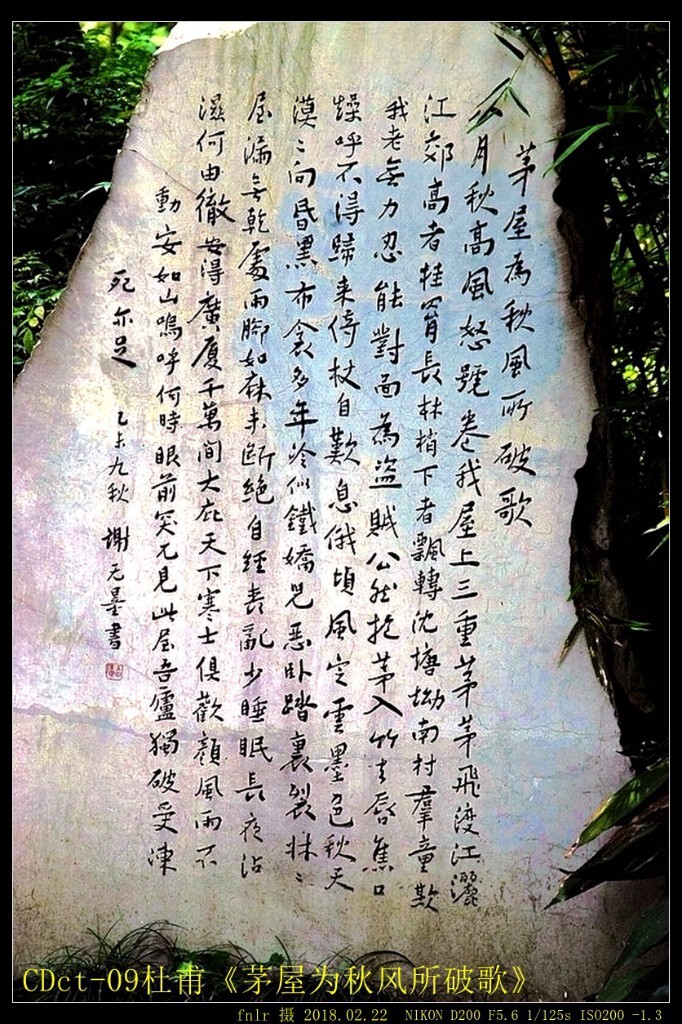 茅屋為秋風所破歌
八月秋高風怒號卷我屋上三重茅茅飛渡江灑
江郊高者挂罥長林梢下者飄轉沈塘坳南村羣童欺
我老無力忍能對面為盜賊公然抱茅入竹去唇焦口
燥呼不得歸来倚杖自歎息俄頃風定雲墨色秋天
漠〻向昏黑布衾多年冷似鐵嬌兒惡卧踏裏裂牀〻
屋漏無乾處雨腳如麻未斷絕自經喪亂少睡眠長夜沾
濕何由徹安得廣厦千萬間大庇天下寒士俱歡顏風雨不
動安如山嗚呼何時眼前突兀見此屋吾廬獨破受凍
死亦足
乙未九秋 謝无量書
CDct-09杜甫《茅屋为秋风所破歌》
fnlr 摄 2018.02.22 NIKON D200 F5.6 1/125s ISO200 -1.3